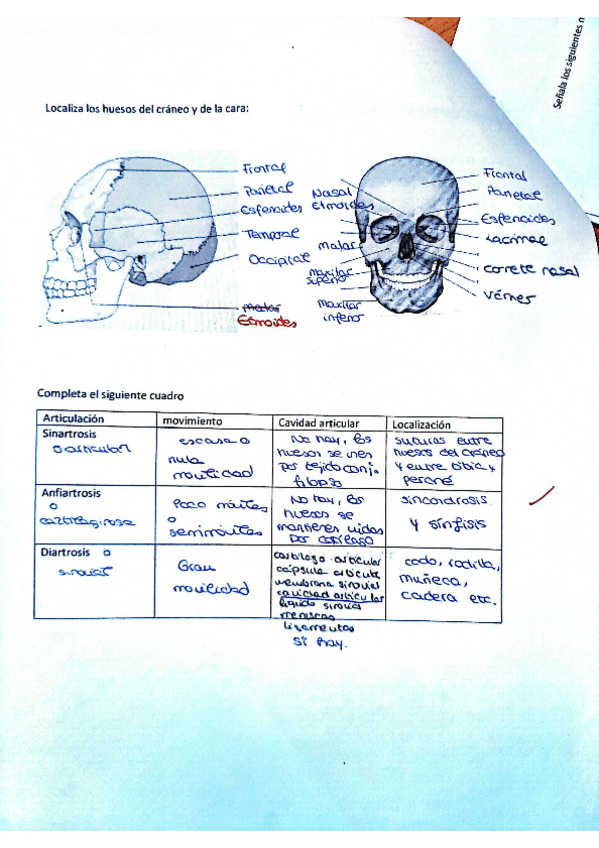 Señala los siguientes
Localiza los huesos del cráneo y de la cara:
Frontal
Parietal
Esfenoides
Temporal
Occipital
Malar
Etmoides
Nasal
etmoides
malar
maxilar
superio
maxilar
inferio
Frontal
Parietal
Esfenoides
Lacrimal
cornete nasal
vómer
Completa el siguiente cuadro
Articulación movimiento Cavidad articular Localización
Sinartrosis
escasa o
nula
movilidad
No hay, los
huesos se unen
por tejido conj.
fibroso
suturas entre
huesos del cráneo
y entre tibia y
peroné
Anfiartrosis
o
cartilaginosa
Poco móviles
o
semimóviles
No hay, los
huesos se
mantienen unidos
por cartílago
sincondrosis
y sínfisis
Diartrosis o
sinovial
Gran
movilidad
cartílago articular
cápsula articular
membrana sinovial
cavidad articular
líquido sinovial
meniscos
ligamentos
sí hay.
codo, rodilla,
muñeca,
cadera etc.